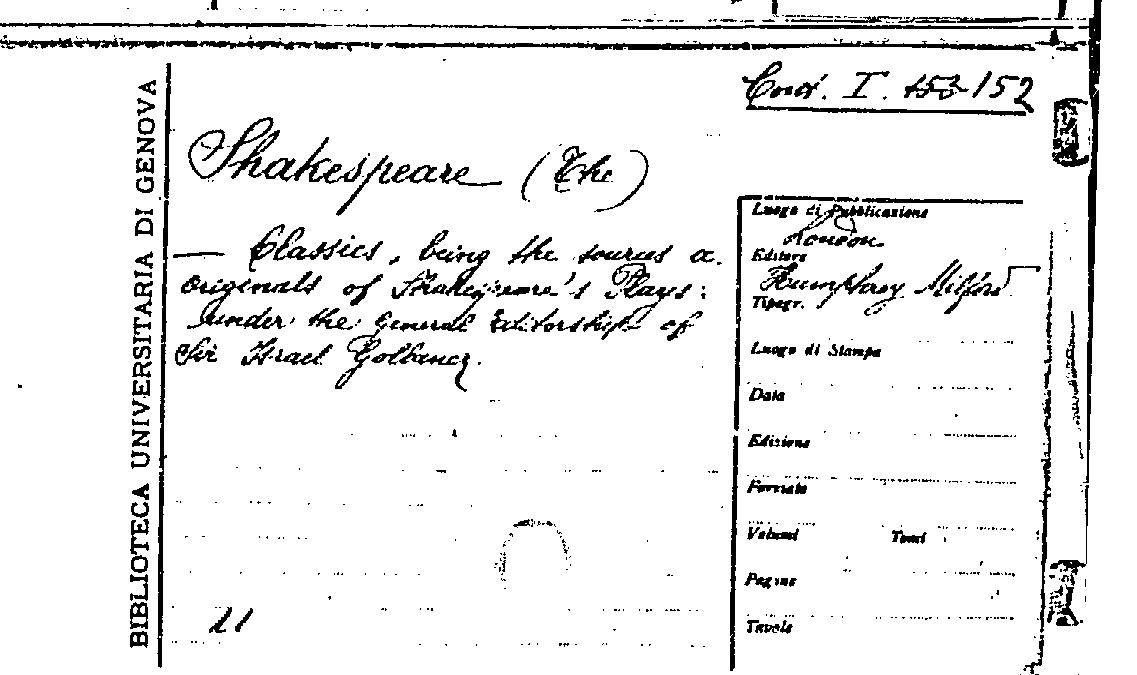 BIBLIOTECA UNIVERSITARIA DI GENOVA
Cord. I. 153 152
Shakespeare (The)
— Classics, being the sources a.
originals of Shakespeare's Plays:
under the general Editorship of
Sir Israel Gollancz.
11
Luogo di Pubblicazione
London
Editore
Humphrey Milford
Tipogr.
Luogo di Stampa
Data
Edizione
Formato
Volumi Tomi
Pagine
Tavole